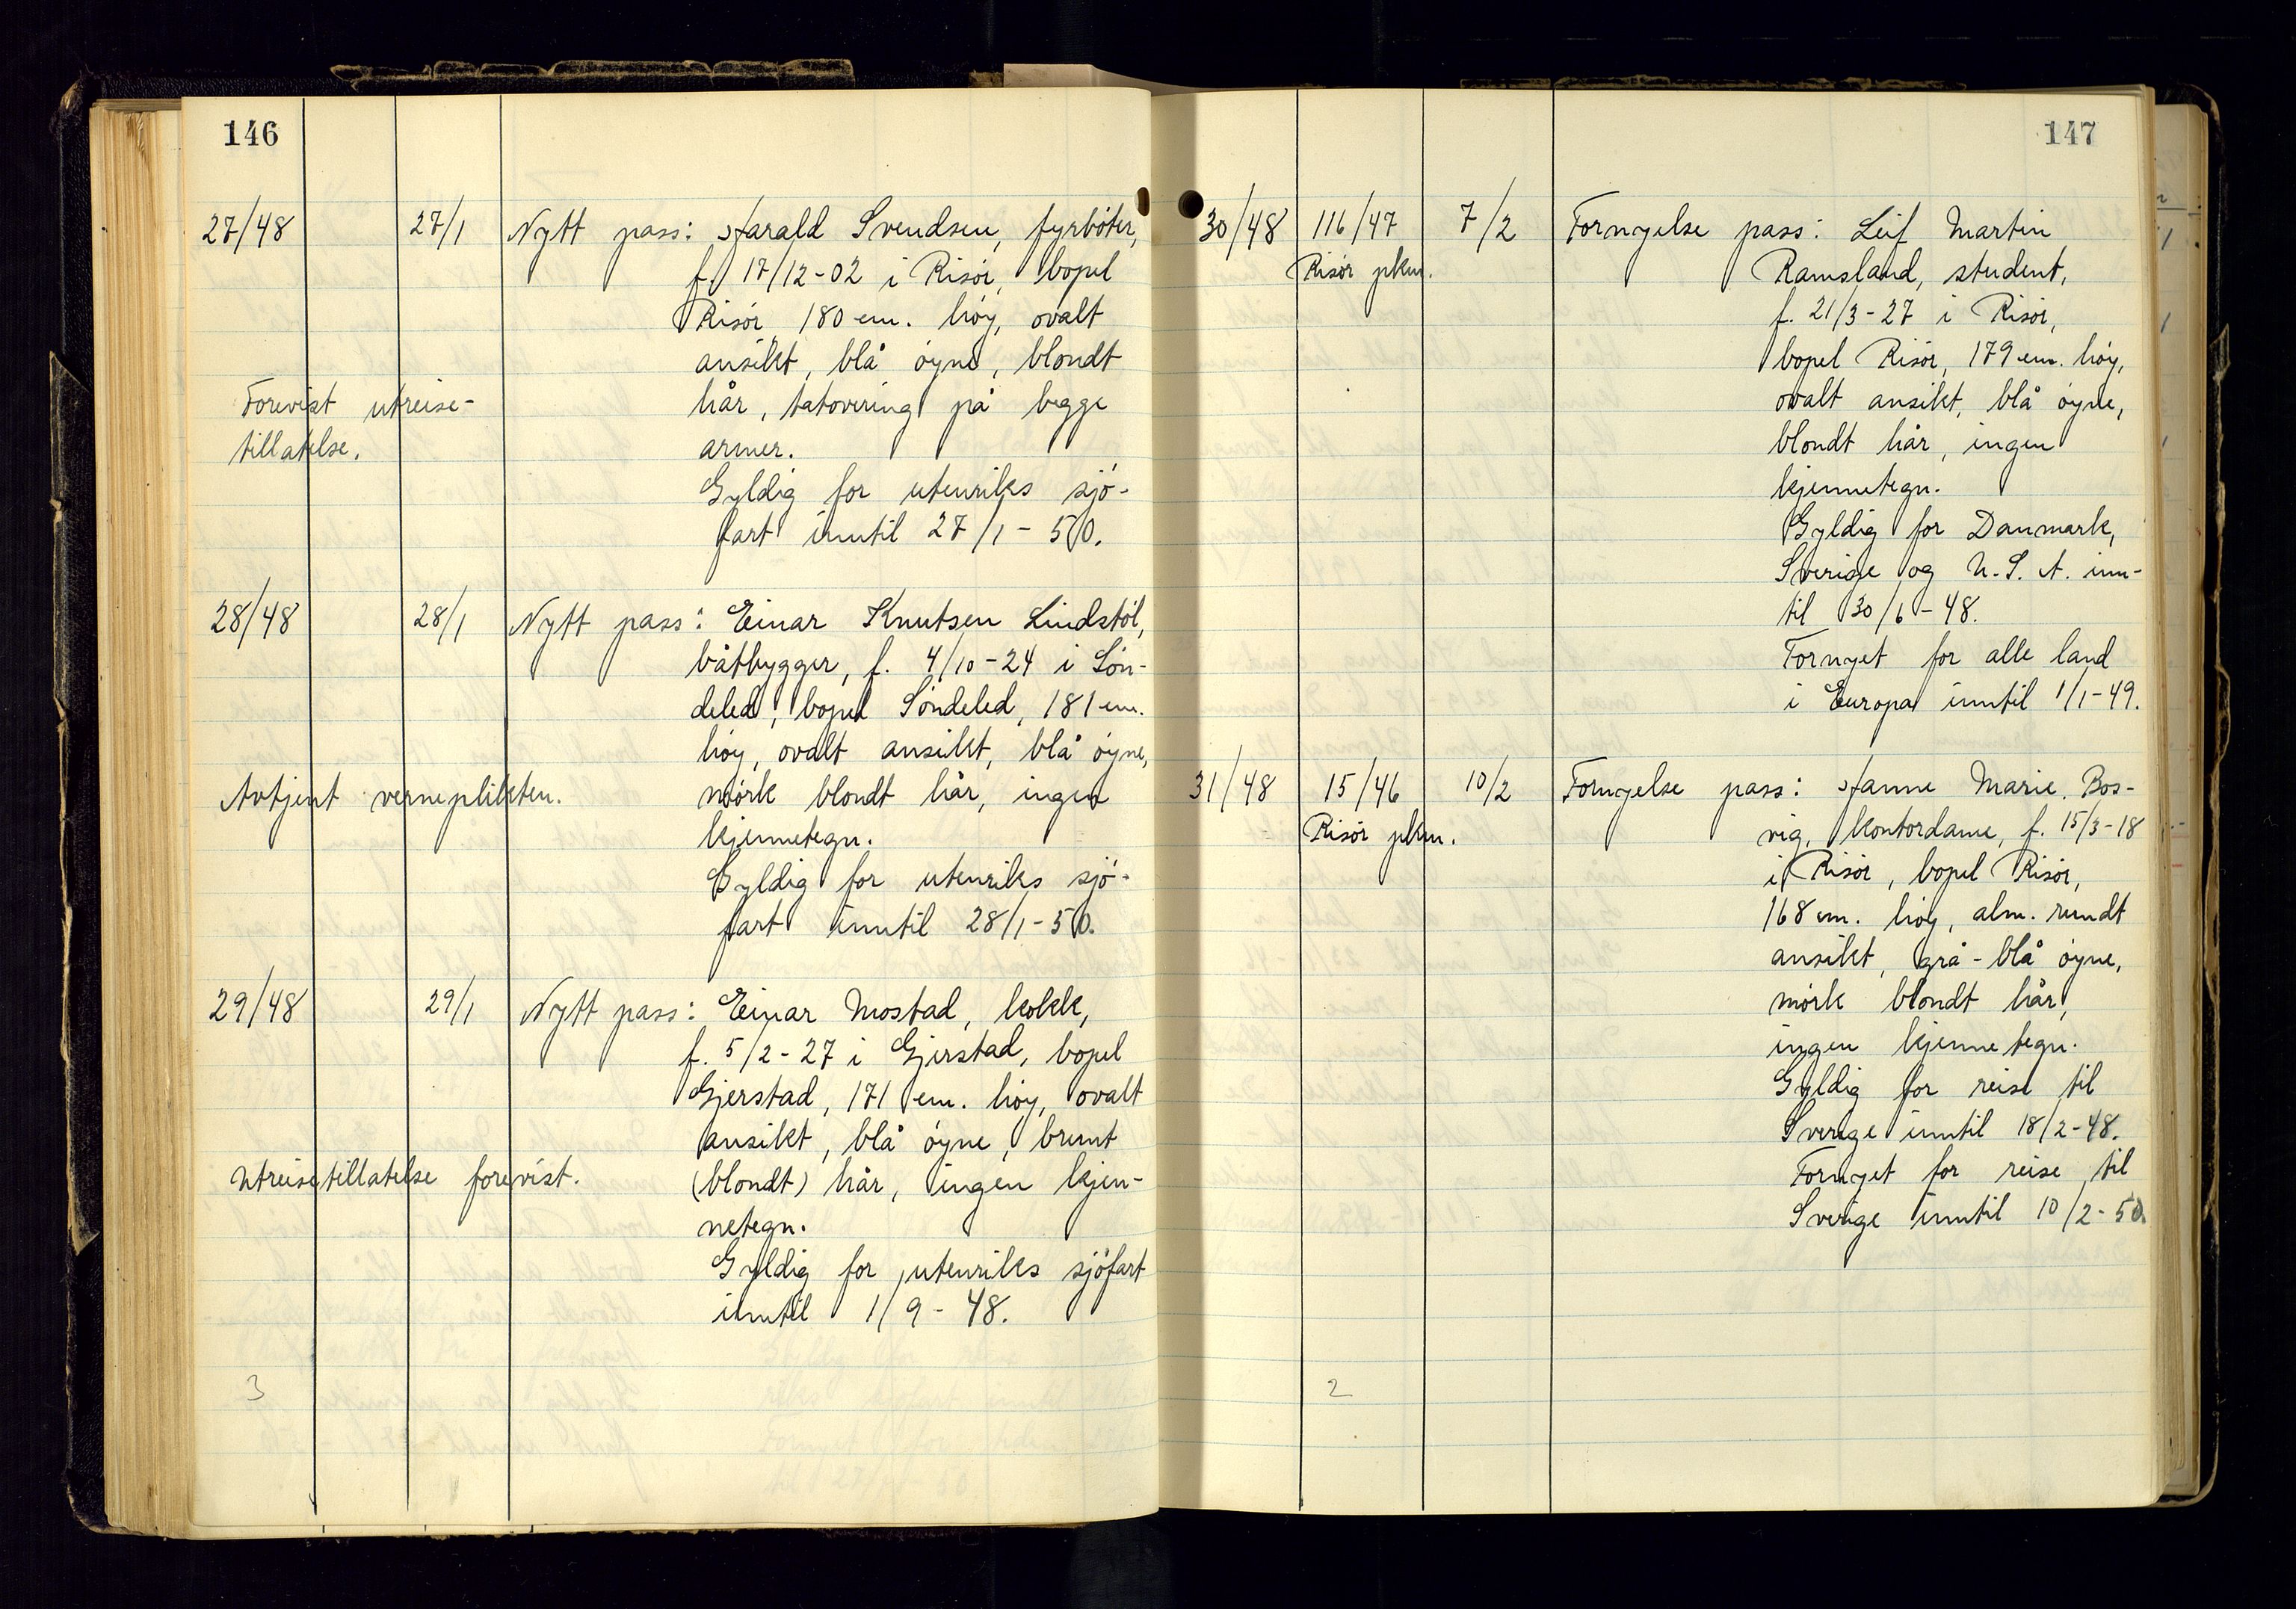 146
27/48 27/1 Nytt pass: Harald Svendsen, fyrböter,
f. 17/12-02 i Risör, bopel
Risör, 180 cm. höy, ovalt
ansikt, blå öyne, blondt
Forevist utreise-
tillatelse.
hår, tatovering på begge
armer.
Gyldig for utenriks sjö-
fart inntil 27/1-50.
28/48 28/1 Nytt pass: Einar Knutsen Lindstöl,
båtbygger, f. 4/10-24 i Sön-
deled, bopel Söndeled, 181 cm.
höy, ovalt ansikt, blå öyne,
Avtjent verneplikten.
mörk blondt hår, ingen
kjennetegn.
Gyldig for utenriks sjö-
fart inntil 28/1-50.
29/48 29/1 Nytt pass: Einar Mostad, kokk,
f. 5/2-27 i Gjerstad, bopel
Gjerstad, 171 cm. höy, ovalt
ansikt, blå öyne, brunt
Utreisetillatelse forevist.
(blondt) hår, ingen kjen-
netegn.
Gyldig for utenriks sjöfart
inntil 1/9-48.
3
147
30/48 116/47 7/2 Fornyelse pass: Leif Martin
Risör pkm.
Ramsland, student,
f. 21/3-27 i Risör,
bopel Risör, 179 cm. höy,
ovalt ansikt, blå öyne,
blondt hår, ingen
kjennetegn.
Gyldig for Danmark,
Sverige og U.S.A. inn-
til 30/6-48.
Fornyet for alle land
i Europa inntil 1/1-49.
31/48 15/46 10/2 Fornyelse pass: Hanne Marie Bos-
Risör pkm.
vig, kontordame, f. 15/3-18
i Risör, bopel Risör,
168 cm. höy, alm. rundt
ansikt, grå-blå öyne,
mörk blondt hår,
ingen kjennetegn.
Gyldig for reise til
Sverige inntil 18/2-48.
Fornyet for reise til
Sverige inntil 10/2-50.
2